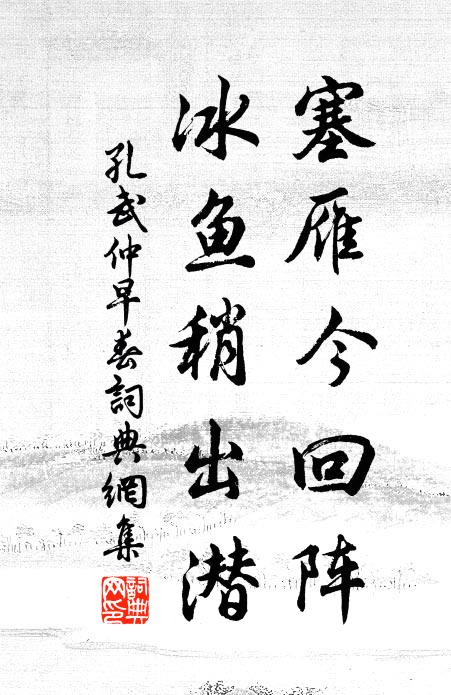 塞雁今回阵
冰鱼稍出潜
孔武仲早春詞典網集
詞典网印